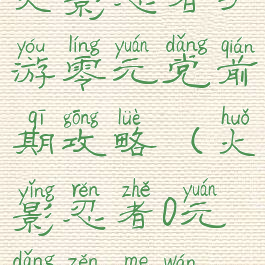 火影忍者手
yóu líng yuán dǎng qián
游零元党前
qī gōng lüè huǒ
期攻略（火
yǐng rěn zhě yuán
影忍者0元
dǎng zěn me wán